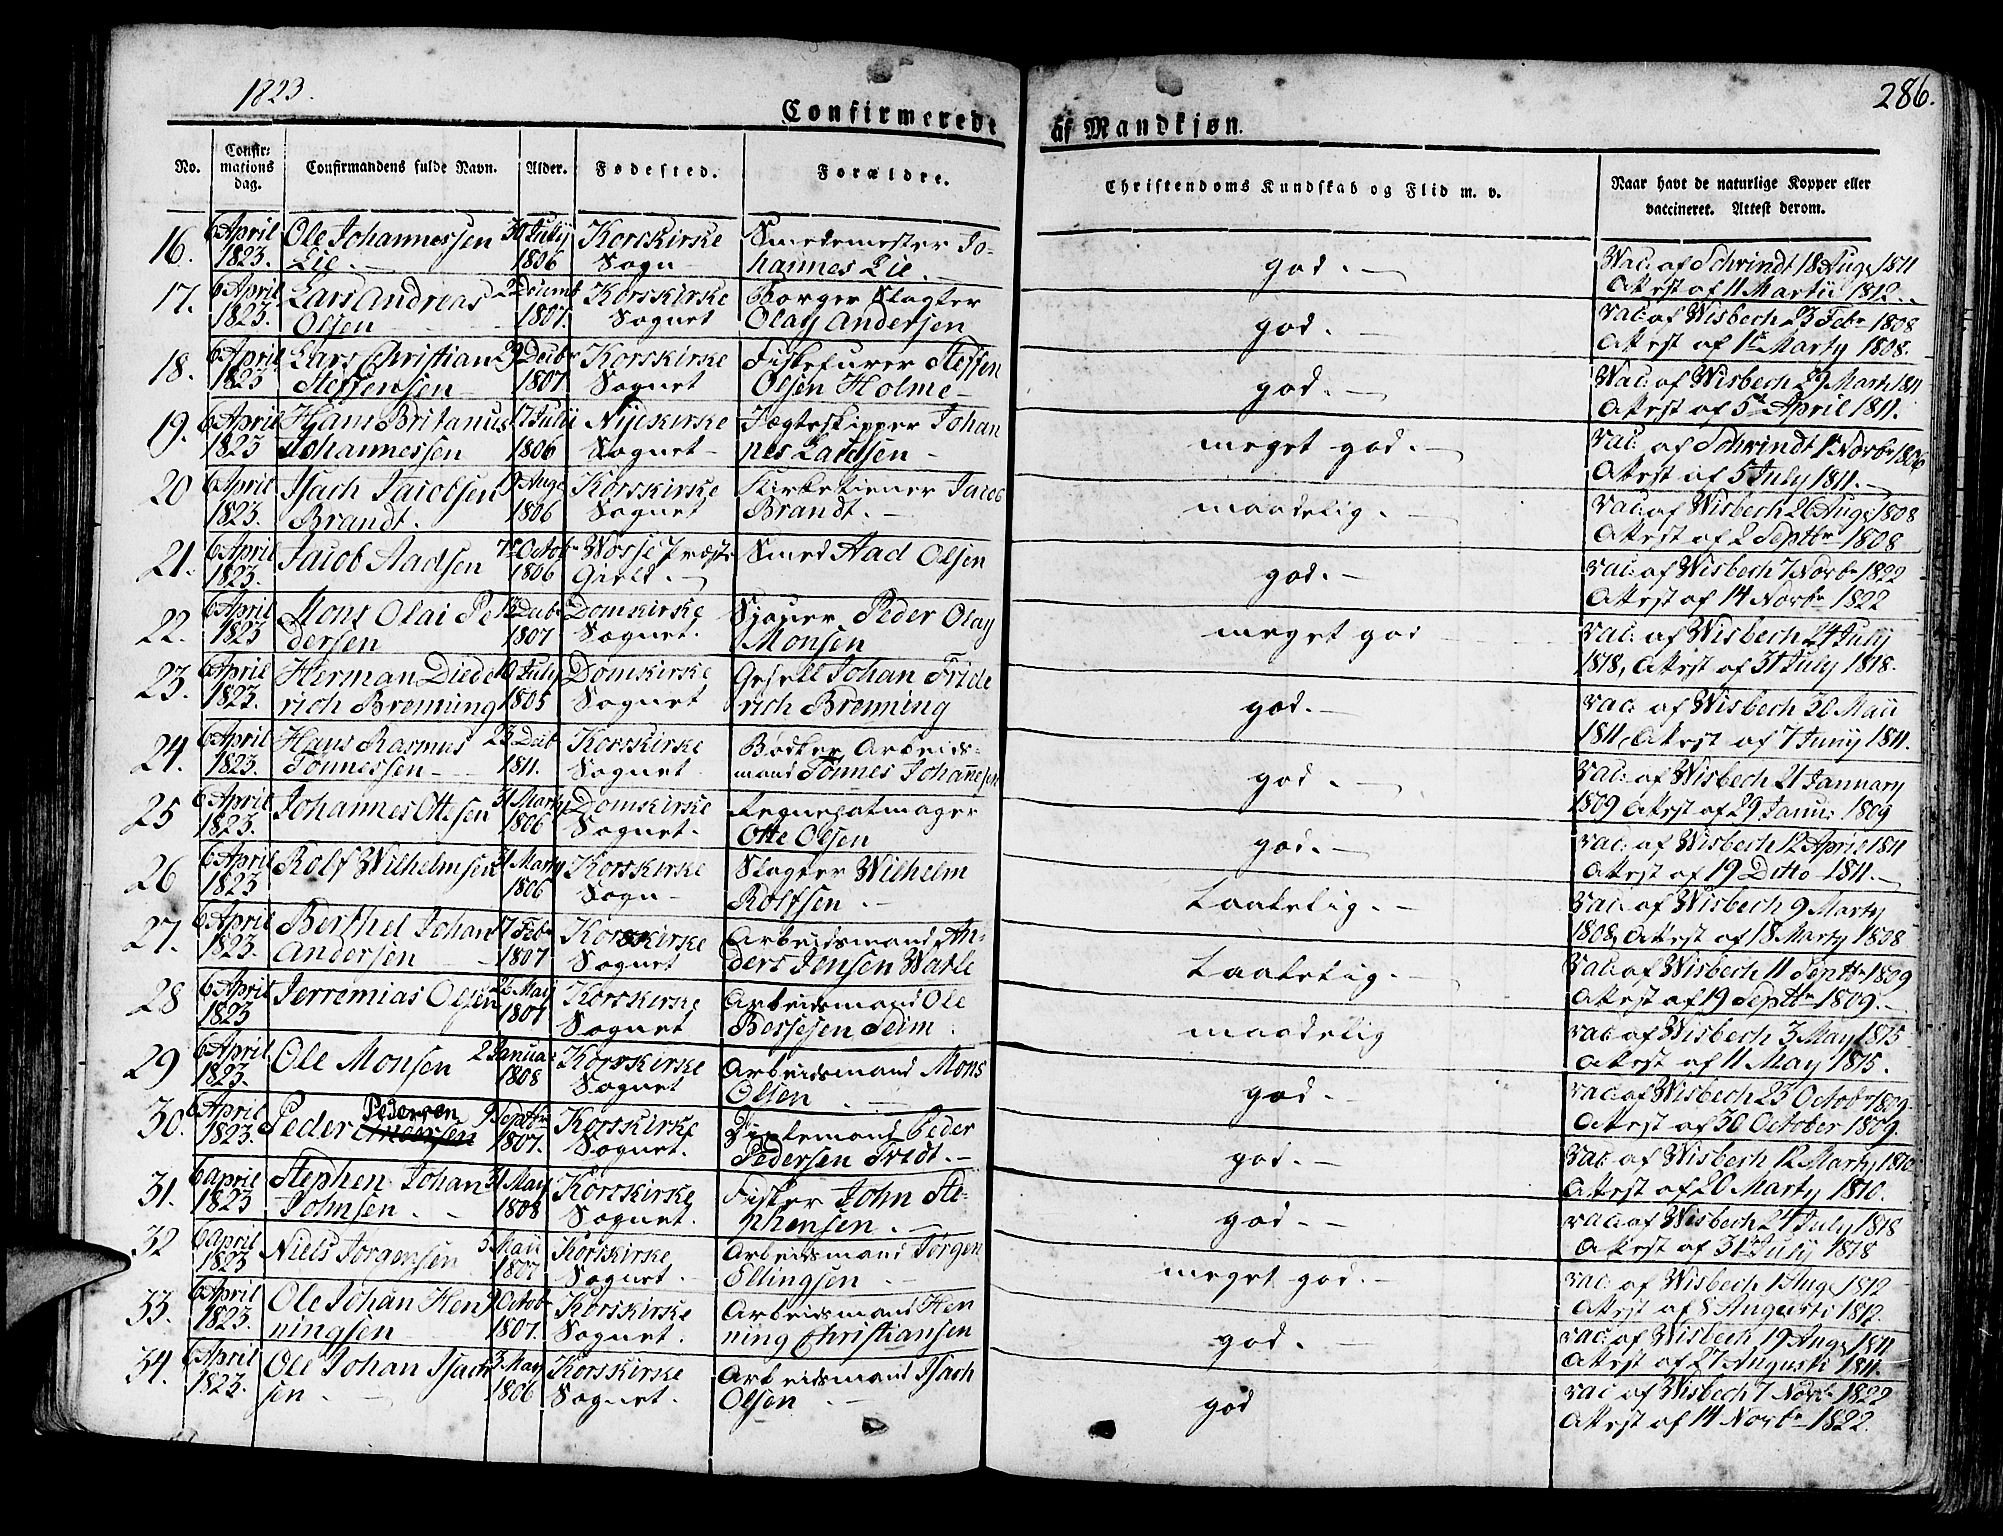 1823.
286.
Confirmerede af Mandkjøn.
No.
Confirmations dag.
Confirmandens fulde Navn.
Alder.
Fødested.
Forældre.
Christendoms Kundskab og Flid m. v.
Naar havt de naturlige Kopper eller
vaccineret. Attest derom.
16. 6 April Ole Johannessen 30 July Korskirke Smedemester Jo-
1823. Lie. 1806 Sogn hannes Lie. god. Vac. af Schrindt 18 Aug 1811
Attest af 11 Martii 1812.
17. 6 April Lars Andreas Korskirke Borger Slagter
1823. Olsen 1807. Sognet Olay Andersen god. vac. af Wisbech 23 Febr 1808
Attest af 1 Marty 1808.
18. 6 April Lars Christian 29 Decbr Korskirke Fiskefurer Steffen
1823 Steffensen 1807. Sognet Olsen Holme god. Vac. af Wisbech 29 Marti 1811
Attest af 5 April 1811.
19. 6 April Hans Britanus 17 Julii Nykirke Jægteskipper Johan
1823 Johannessen 1806 Sognet nes god. meget god. vac. af Schrindt 1 Novbr 1806
Attest af 5 July 1811.
20 6 April Isach Jacobsen 9 Aug Korskirke Kirketiener Jacob
1823. Brandt. 1806 Sognet Brandt. maadelig. vac. af Wisbech 26 Aug 1808
Attest af 2 Septbr 1808
21. 6 April Jacob Aadsen 7 Octob Wosse Præste Smed Aad Olsen
1823. 1806 Gield. god. vac. af Wisbech 7 Novbr 1822
Attest af 14 Novbr 1822
22. 6 April Mons Olai Pe 13 Decbr Domkirke Peder Olay
1823 dersen 1807 Sognet. Monsen meget god vac. af Wisbech 24 July
1818, Attest af 31 July 1818.
23. 6 April Herman Diede 10 July Domkirke Gesell Johan Fride
1823. rich Brenning 1805 Sognet rich Brenning god. vac. af Wisbech 30 Maii
1811, Attest af 7 Junij 1811.
24. 6 April Hans Rasmus 23 Decb Korskirke Bødker Arbeids-
1823. Tønnessen 1811. Sognet mand Tønnes Johannesen god. vac. af Wisbech 21 January
1809 Attest af 29 Janu: 1809
25 6 April Johannes Ottesen 31 Marty Domkirke
1823. 1806 Sognet. Otte Olsen god. vac. af Wisbech 12 April 1811
Attest af 19 Ditto 1811.
26 6 April Rolf Wilhelmsen 31 Marty Korskirke Slagter Wilhelm
1823 1806 Sogn Rolfsen. Laakelig. vac. af Wisbech 9 Marty
1808, Attest af 18 Marty 1808
27. 6 April Berthel Johan 17 Febr Korskirke Arbeidsmand An-
1823. Andersen 1807 Sognet ders Jensen Watle Laakelig. vac. af Wisbech 11 Septbr 1809
Attest af 19 Septbr 1809.
28 6 April Jerremias Olsen 26 May Korskirke Arbeidsmand Ole
1823 1807 Sognet Bessesen Seim. maadelig vac af Wisbech 3 May 1815
Attest af 11 May 1815.
29 6 April Ole Monsen 2 Januar Korskirke Arbeidsmand Mons
1823. 1808 Sognet Olsen god. vac. af Wisbech 23 Octobr 1809.
Attest af 30 October 1809.
30. 6 April Peder Pedersen Andersen 9 Septbr Korskirke Peder
1823. 1807. Sognet. Pedersen Tridt. god. vac af Wisbech 12 Marty 1810
Attest af 20 Marty 1810.
31. 6 April Stephen Johan 31 May Korskirke Fisker John Ste-
1823 Johnsen. 1808 Sognet. phensen. god. vac. af Wisbech 24 July 1818
Attest af 31 July 1818
32 6 April Niels Jørgensen 3 Maii Korskirke Arbeidsmand Jørgen
1823 1807 Sognet. Ellingsen. meget god. vac. af Wisbech 1 Aug 1812
Attest af 8 Augusti 1812.
33. 6 April Ole Johan Hen 9 Octob Korskirke Arbeidsmand Hen
1823. ningsen 1807. Sognet. ning Christiansen god. vac. af Wisbech 19 Aug 1811
Attest af 27 Augusti 1811.
34. 6 April Ole Johan Isach 3 May Korskirke Arbeidsmand Isach
1823. sen. 1806 Sognet. Olsen god vac af Wisbech 7 Novbr 1822
Attest af 14 Novbr 1822.